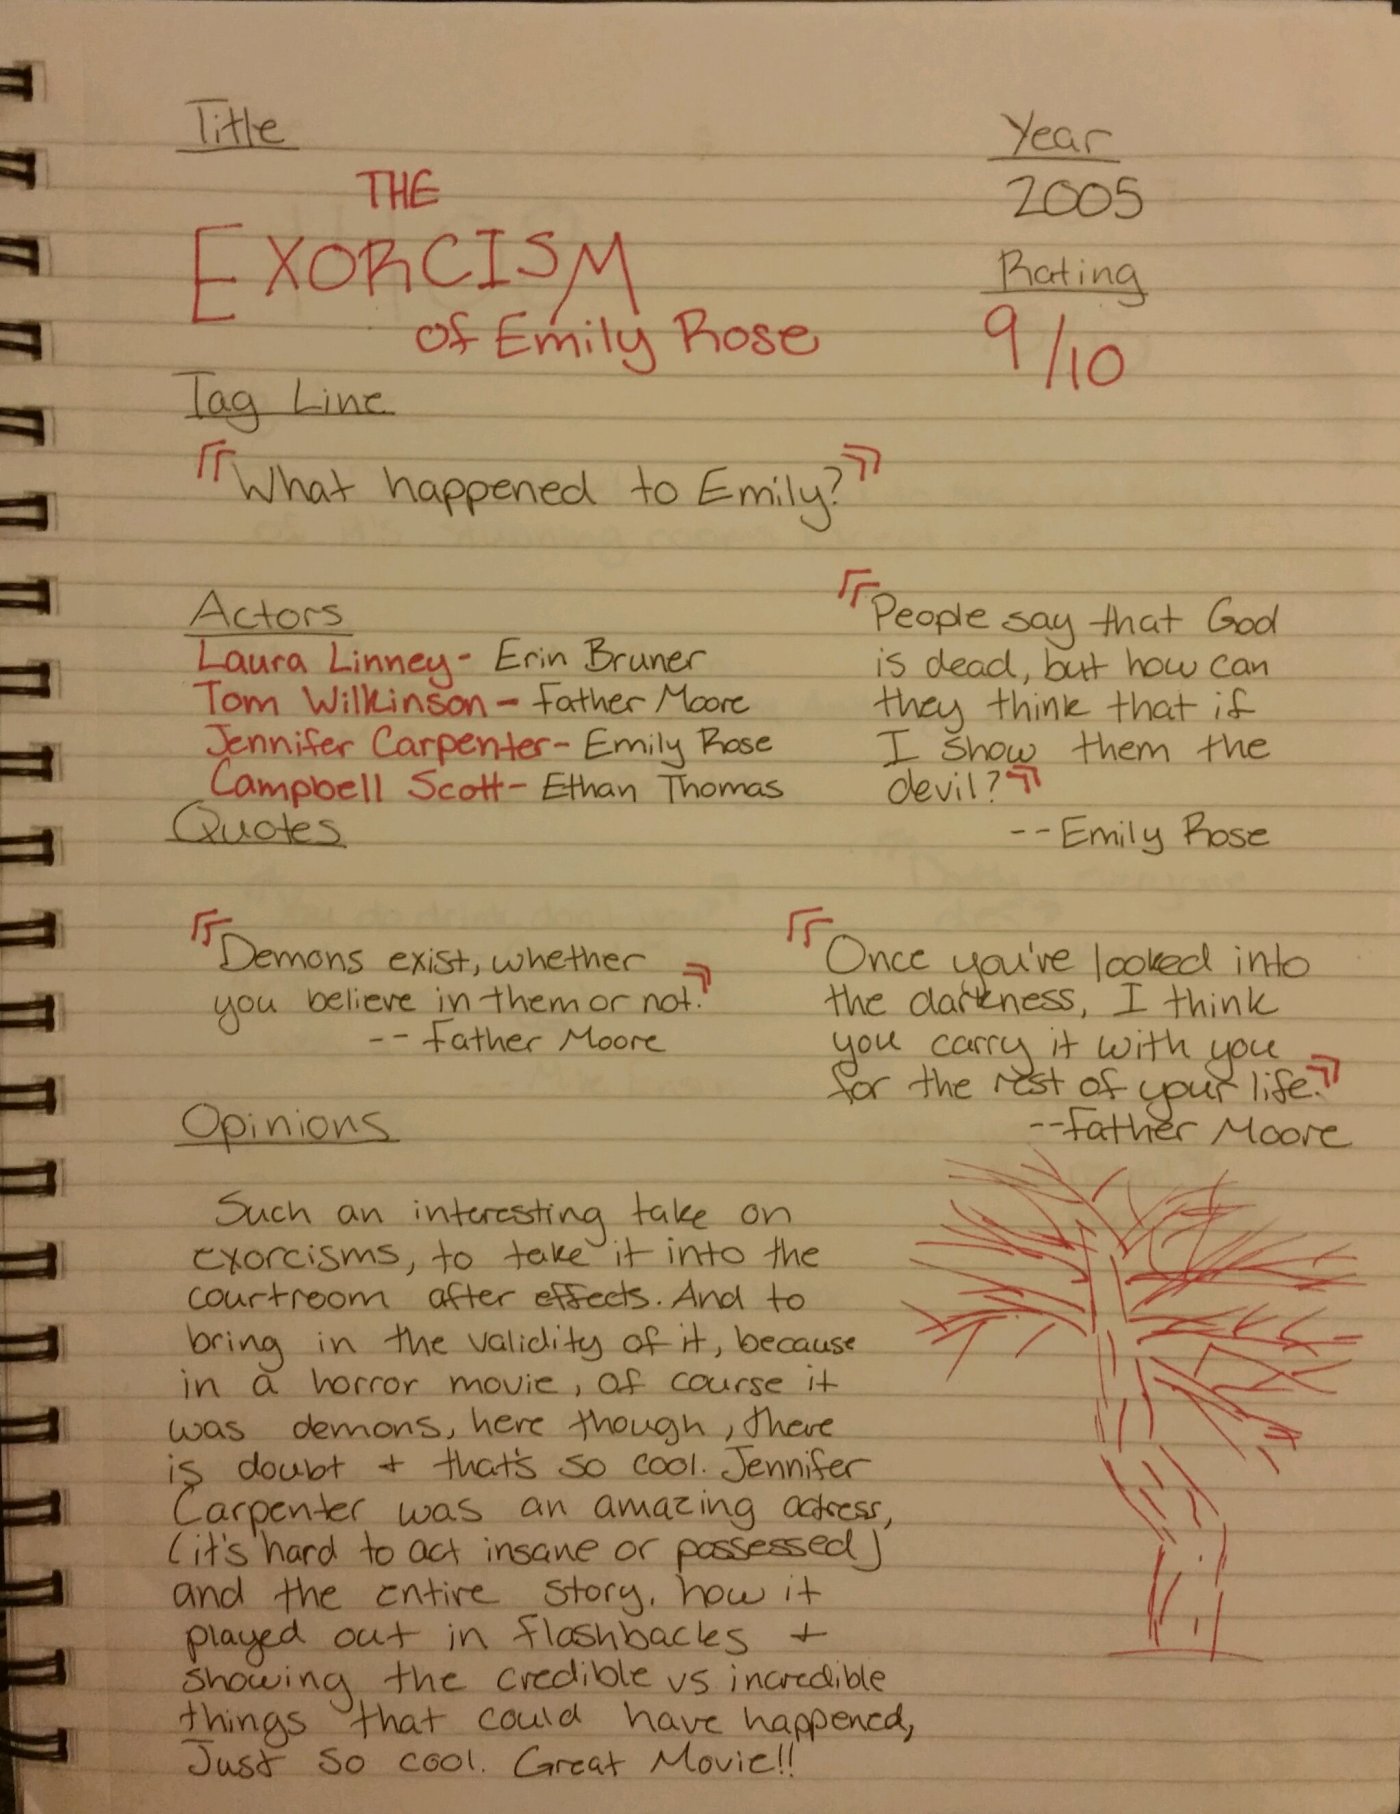 Title
THE
EXORCISM
of Emily Rose
Year
2005
Rating
9/10
Tag Line
"What happened to Emily?"
Actors
Laura Linney- Erin Bruner
Tom Wilkinson- Father Moore
Jennifer Carpenter- Emily Rose
Campbell Scott- Ethan Thomas
Quotes
"People say that God
is dead, but how can
they think that if
I show them the
devil?"
-- Emily Rose
"Demons exist, whether
you believe in them or not."
-- Father Moore
"Once you've looked into
the darkness, I think
you carry it with you
for the rest of your life."
--Father Moore
Opinions
Such an interesting take on
exorcisms, to take it into the
courtroom after effects. And to
bring in the validity of it, because
in a horror movie, of course it
was demons, here though, there
is doubt + that's so cool. Jennifer
Carpenter was an amazing actress,
(it's hard to act insane or possessed)
and the entire story, how it
played out in flashbacks +
showing the credible vs incredible
things that could have happened,
Just so cool. Great Movie!!